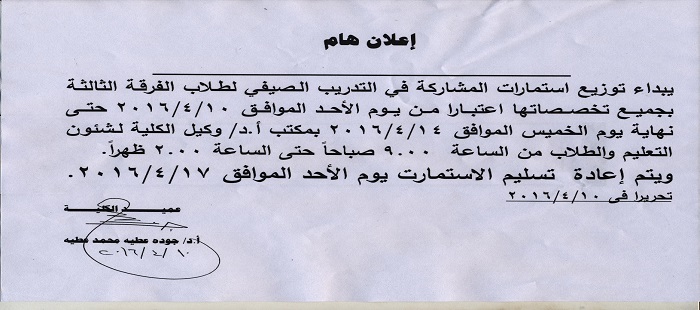 إعلان هام
يبداء توزيع استمارات المشاركة في التدريب الصيفي لطلاب الفرقة الثالثة
بجميع تخصصاتها اعتبارا من يوم الأحد الموافق ٢٠١٦/٤/١٠ حتى
نهاية يوم الخميس الموافق ٢٠١٦/٤/١٤ بمكتب أ.د/ وكيل الكلية لشئون
التعليم والطلاب من الساعة ٩.٠٠ صباحاً حتى الساعة ٢.٠٠ ظهراً.
ويتم إعادة تسليم الاستمارت يوم الأحد الموافق ٢٠١٦/٤/١٧.
تحريرا في ٢٠١٦/٤/١٠
عميد الكلية
أ.د/ جوده عطيه محمد عطيه
٢٠١٦/٤/١٠